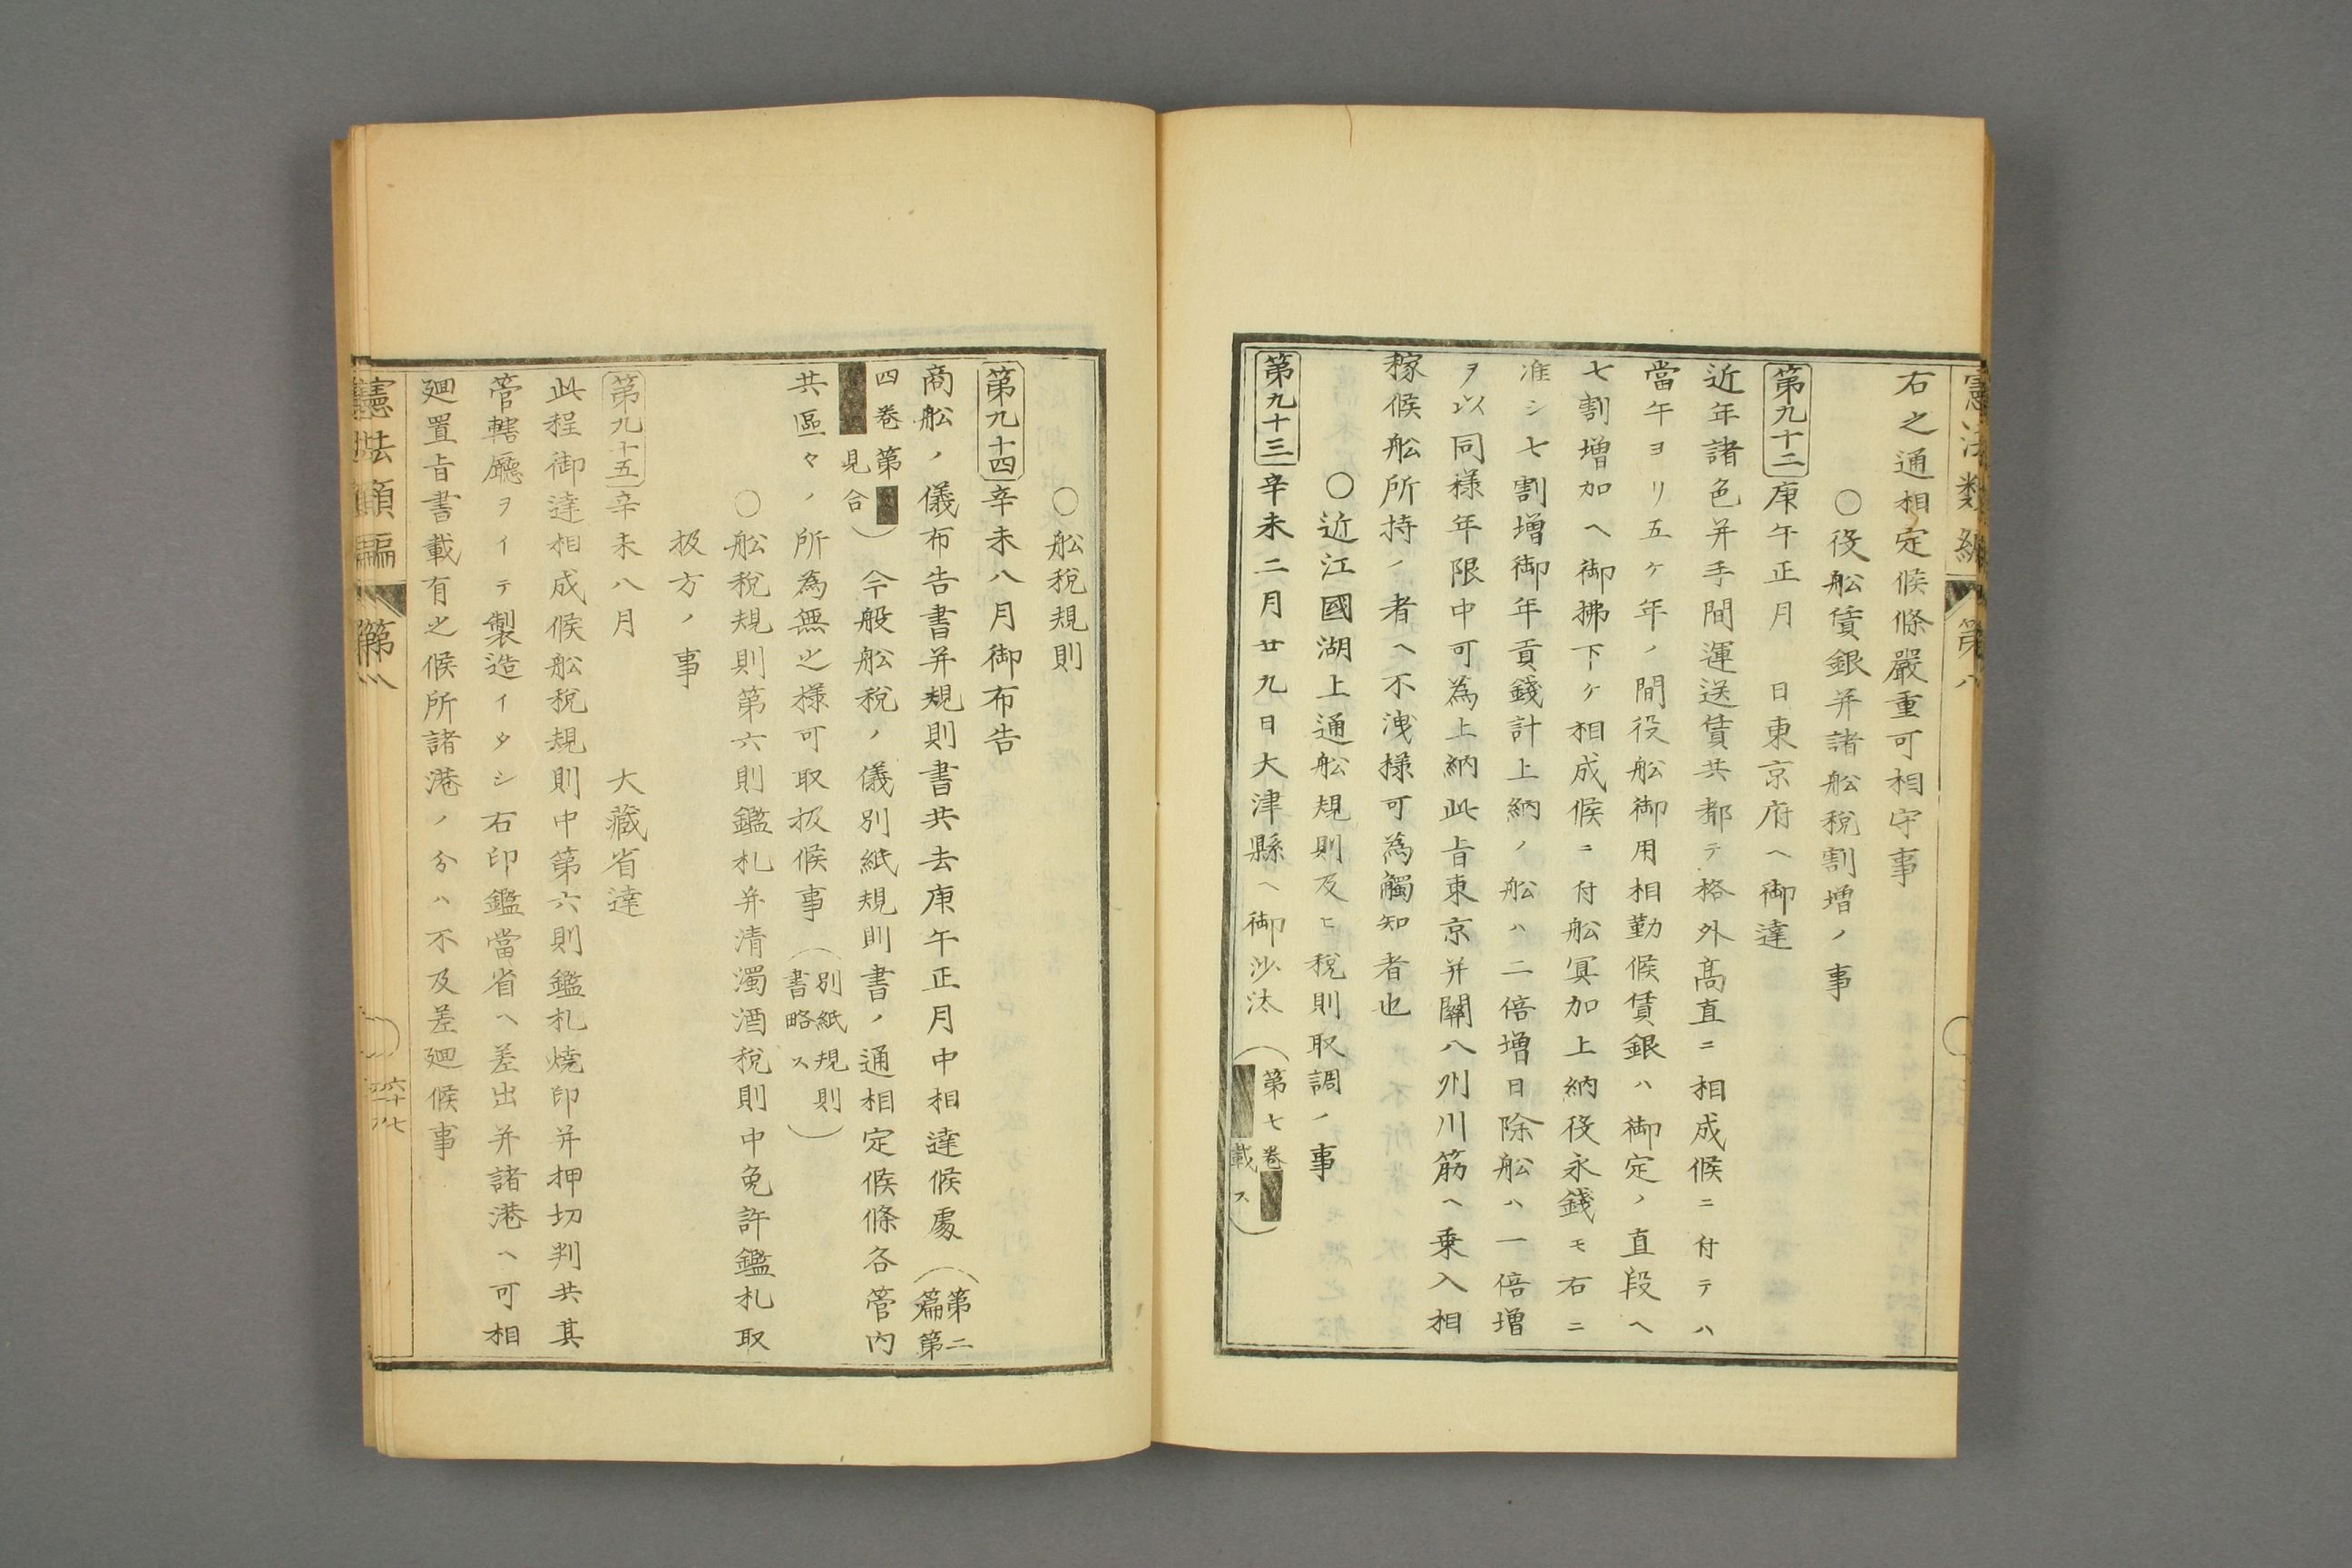 憲法類編
第八
右之通相定候條嚴重可相守事
○役舩賃銀并諸舩税割増ノ事
第九十二 庚午正月 日東京府ヘ御達
近年諸色并手間運送賃共都テ格外高直ニ相成候ニ付テハ
當午ヨリ五ケ年ノ間役舩御用相勤候賃銀ハ御定ノ直段ヘ
七割増加ヘ御拂下ケ相成候ニ付舩冥加上納役永錢モ右ニ
准シ七割増御年貢錢計上納ノ舩ハ二倍増日除舩ハ一倍増
ヲ以同様年限中可為上納此旨東京并關八州川筋ヘ乗入相
稼候舩所持ノ者ヘ不洩様可為觸知者也
○近江國湖上通舩規則及ヒ税則取調ノ事
第九十三 辛未二月廿九日大津縣ヘ御沙汰(第七卷
載ス)
○舩税規則
第九十四 辛未八月御布告
商舩ノ儀布告書并規則書共去庚午正月中相達候處(第二
篇第
四卷第
見合)今般舩税ノ儀別紙規則書ノ通相定候條各管内
共區々ノ所為無之様可取扱候事(別紙規則
書略ス)
○舩税規則第六則鑑札并清濁酒税則中免許鑑札取
扱方ノ事
第九十五 辛未八月 大藏省達
此程御達相成候舩税規則中第六則鑑札燒印并押切判共其
管轄廳ヲイテ製造イタシ右印鑑當省ヘ差出并諸港ヘ可相
廻置旨書載有之候所諸港ノ分ハ不及差廻候事
憲法類編
第八
六十七